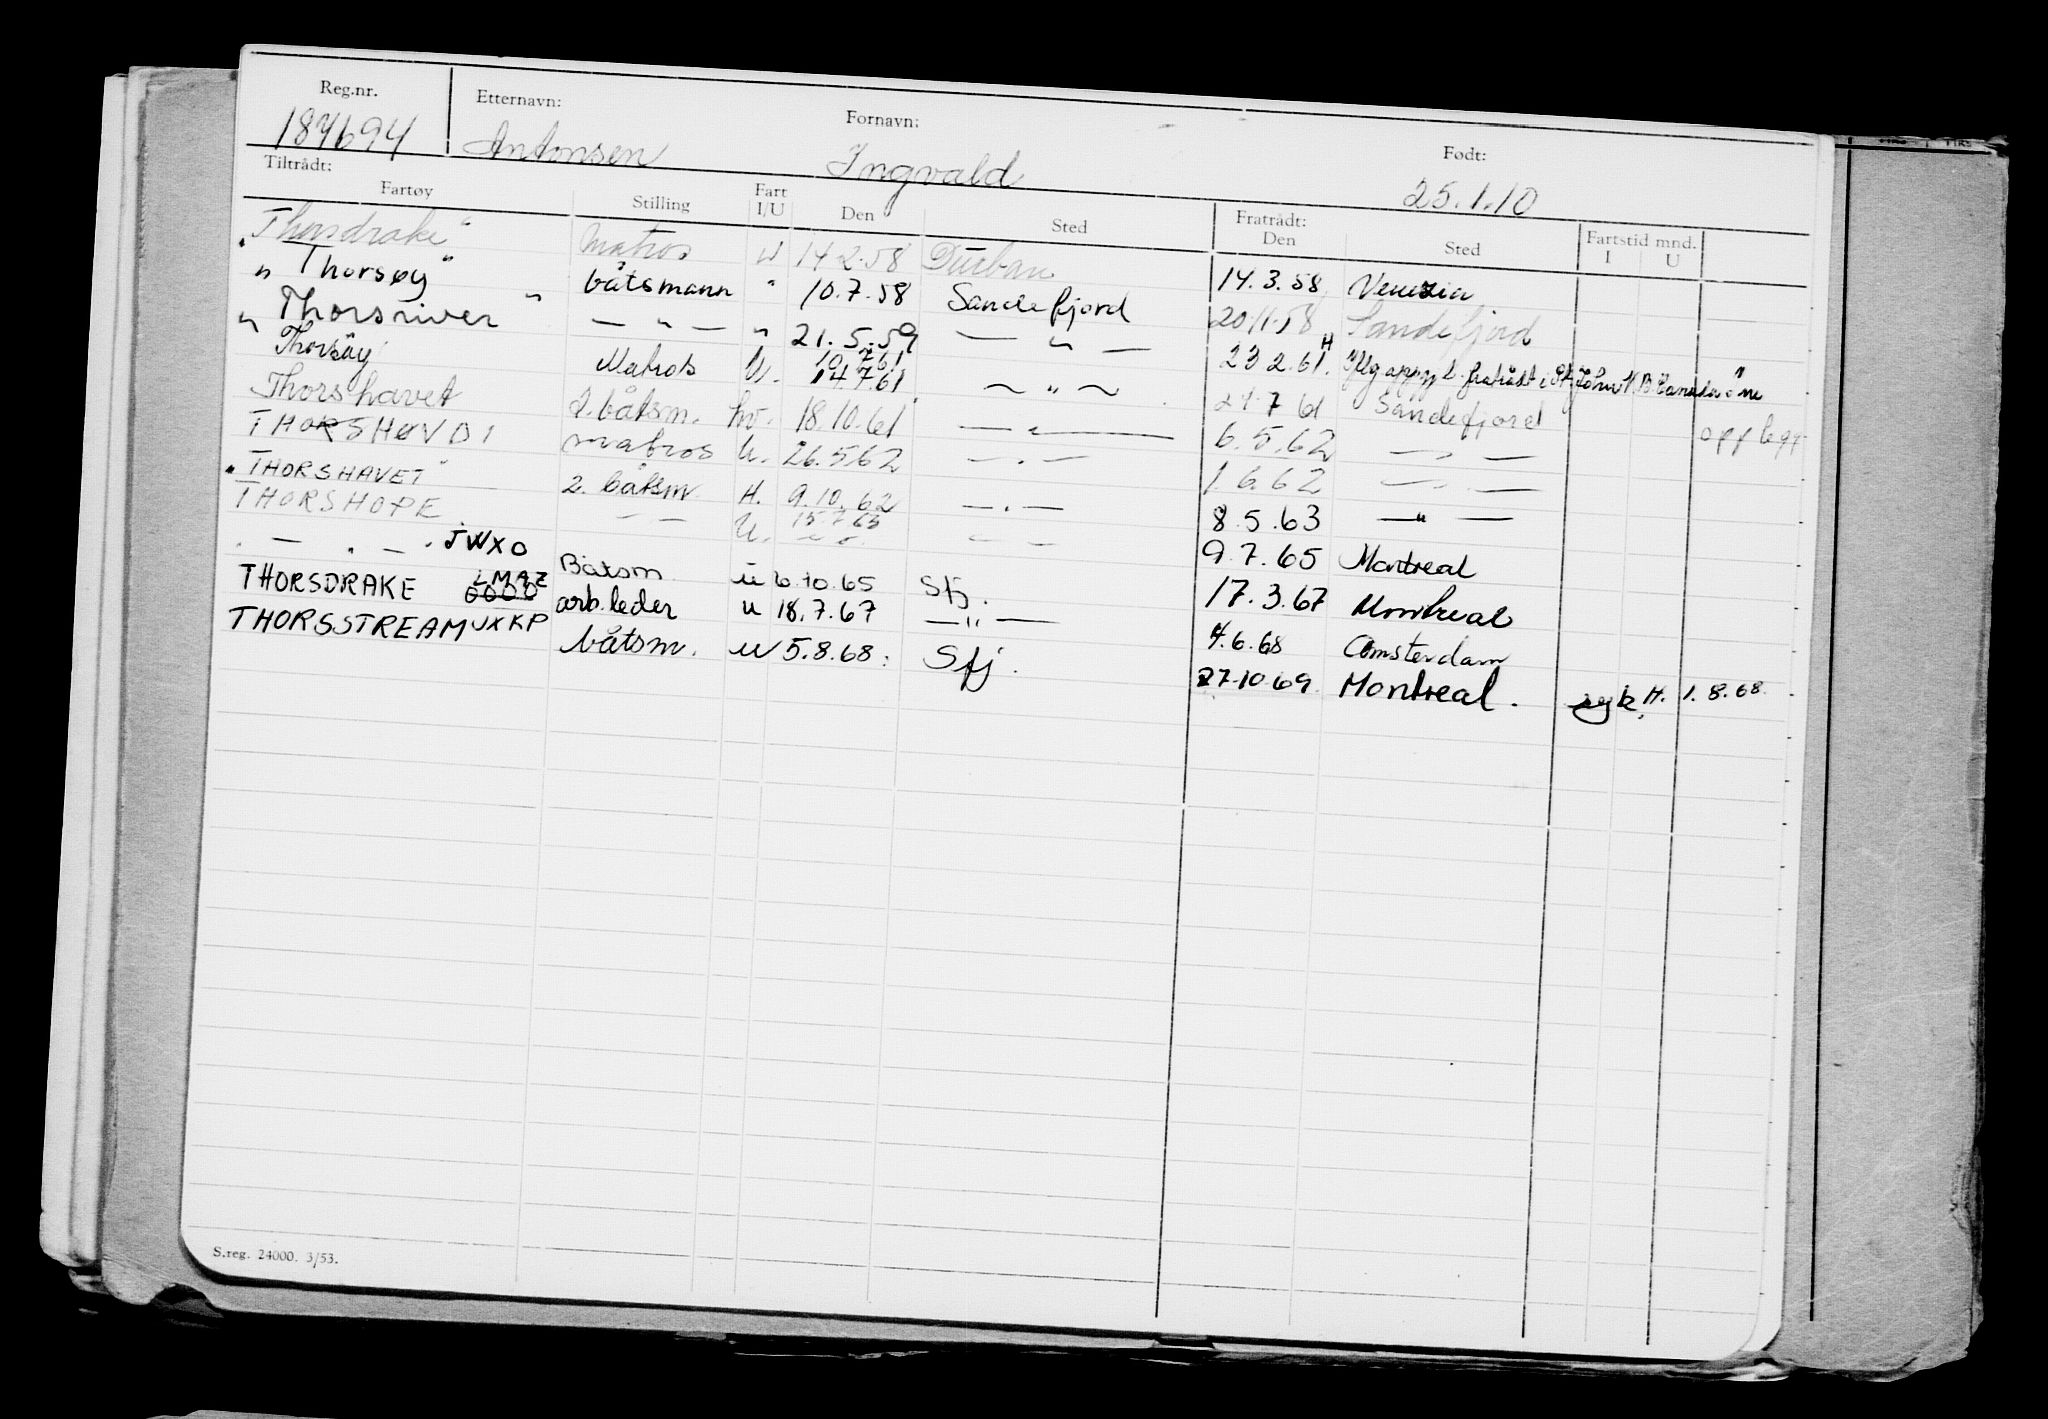 Reg.nr. Etternavn: Fornavn: Født:
187694 Antonsen Ingvald 25.1.10
Tiltrådt: Fratrådt: Fartstid mnd.
Fartøy Stilling Fart I/U Den Sted Den Sted I U
"Thorsdrake" Matros U 14.2.58 Durban 14.3.58 Venezia
" Thorsøy " båtsmann " 10.7.58 Sandefjord 20.11.58 Sandefjord
" Thorsriver " — " — " 21.5.59 — " — 23.2.61.
Thorsøy Matros U. 10.7.61 14.7.61 ~ " ~ 21.7.61 Sandefjord opplegg
Thorshavet 2. båtsm. hv. 18.10.61 — " — 6.5.62 — " —
THORSHØVDI matros U. 26.5.62 — " — 1.6.62 — " —
"THORSHAVET" 2. båtsm. H. 9.10.62 — " — 8.5.63 — " —
THORSHOPE — — U. 15.7.63 — — 9.7.65 Montreal
" — " — " JWXO Båtsm. U 6.10.65 Sfj. 17.3.67 Montreal
THORSDRAKE LMAZ arb.leder u 18.7.67 — " — 4.6.68 Amsterdam
THORSSTREAM JXKP båtsm. u 5.8.68. Sfj. 27.10.69. Montreal. syk. H. 1.8.68.
S.reg. 24000. 3/53.